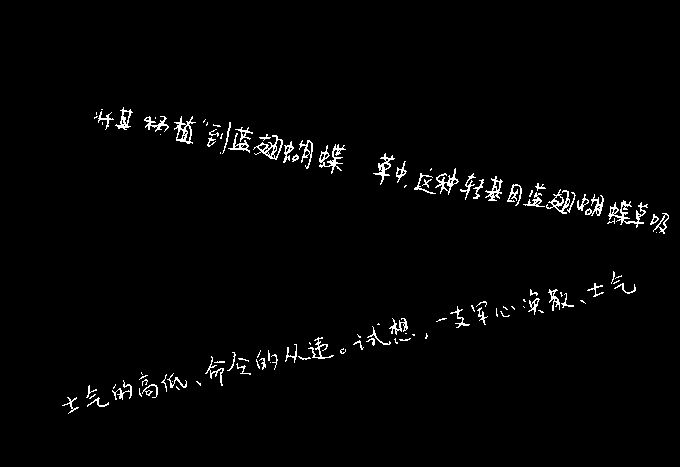 将其“移植”到蓝翅蝴蝶草中,这种转基因蓝翅蝴蝶草吸
士气的高低、命令的从违。试想,一支军心涣散、士气